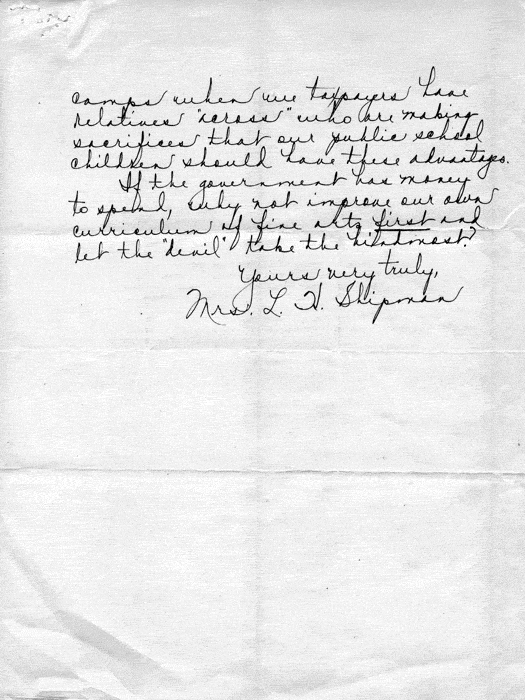 camps when we taxpayers have
relatives "across" who are making
sacrifices that our public school
children should have these advantages.
If the government has money
to spend, why not improve our own
curriculum of fine arts first and
let the "devil" take the hindmost?
Yours very truly,
Mrs. L. H. Shipman